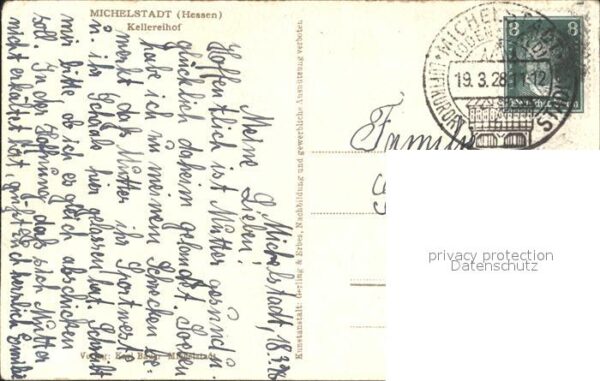 MICHELSTADT (Hessen)
Kellereihof
Michelstadt, 18.3.28
Meine Lieben!
Hoffentlich ist Mutter gesund u.
glücklich daheim gelandet. Soeben
habe ich zu meinem Schrecken be-
merkt, daß Mutter ihr Sportweste
u. ihr Schaal hier gelassen hat. Schreibt
mir bitte ob ich es gleich abschicken
soll. In der Hoffnung, daß sich Mutter
nicht erkältet hat, grüßt Euch herzlich Emilie
Verlag: Karl Bauer Michelstadt
Kunstanstalt: Gerling & Erbes, Nachbildung und gewerbliche Ausnutzung verboten
MICHELSTADT
19.3.28.11-12
8 8
Familie
privacy protection
Datenschutz